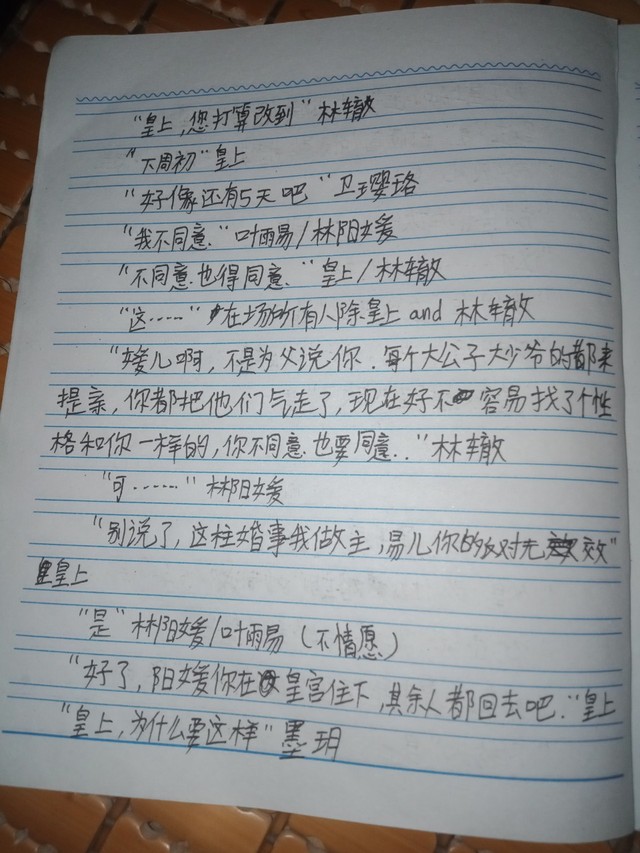 "皇上,您打算改到"林辙
"下周初"皇上
"好像还有5天吧"卫璎珞
"我不同意."叶雨易/林阳媛
"不同意也得同意."皇上/林辙
"这……"在场所有人除皇上and林辙
"媛儿啊,不是为父说你.每个大公子大少爷的都来
提亲,你都把他们气走了,现在好不容易找了个性
格和你一样的,你不同意.也要同意.."林辙
"可……"林阳媛
"别说了,这柱婚事我做主,易儿你的反对无效"
皇上
"是"林阳媛/叶雨易(不情愿)
"好了,阳媛你在皇宫住下,其余人都回去吧."皇上
"皇上,为什么要这样"墨玥